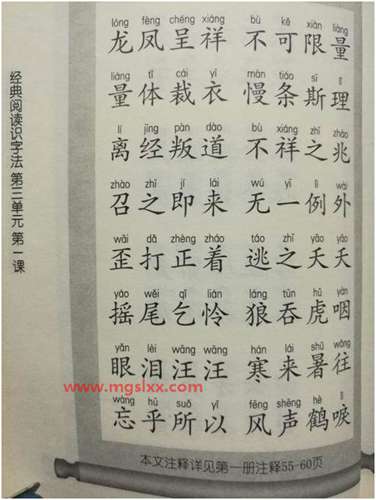 经典阅读识字法 第三单元 第一课
lóng fèng chéng xiáng bù kě xiàn liàng
龙凤呈祥 不可限量
liàng tǐ cái yī màn tiáo sī lǐ
量体裁衣 慢条斯理
lí jīng pàn dào bù xiáng zhī zhào
离经叛道 不祥之兆
zhào zhī jí lái wú yī lì wài
召之即来 无一例外
wāi dǎ zhèng zháo táo zhī yāo yāo
歪打正着 逃之夭夭
yáo wěi qǐ lián láng tūn hǔ yàn
摇尾乞怜 狼吞虎咽
yǎn lèi wāng wāng hán lái shǔ wǎng
眼泪汪汪 寒来暑往
wàng hū suǒ yǐ fēng shēng hè lì
忘乎所以 风声鹤唳
www.mgslxx.com
本文注释详见第一册注释55-60页